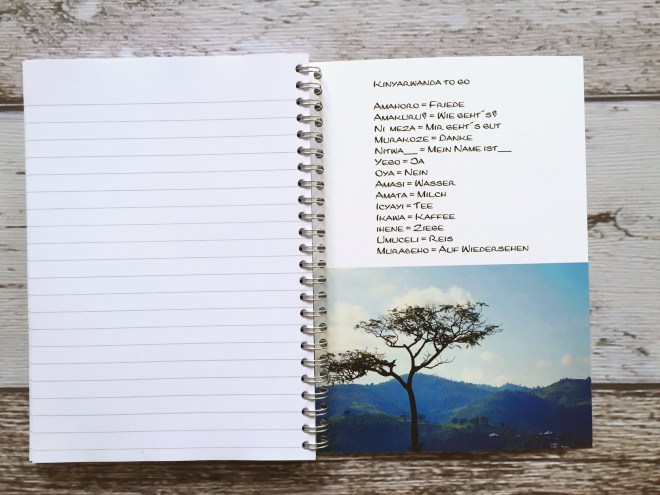 Kinyarwanda to go
Amahoro = Friede
Amakuru? = Wie geht´s?
Ni meza = Mir geht´s gut
Murakoze = Danke
Nitwa___ = Mein Name ist___
Yego = Ja
Oya = Nein
Amasi = Wasser
Amata = Milch
Icyayi = Tee
Ikawa = Kaffee
ihene = Ziege
Umuceli = Reis
Murabeho = Auf Wiedersehen